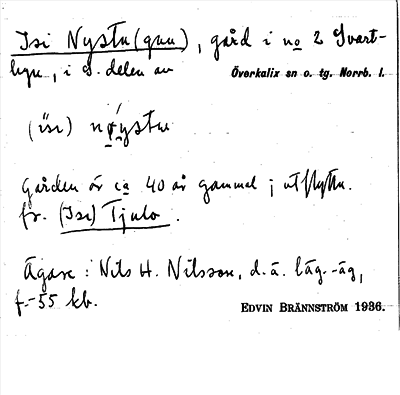 Isi Nystu(guu), gård i no 2 Svart-
byn, i S. delen av Överkalix sn o. tg. Norrb. l.
(isi) nøystu
Gården är ca 40 år gammal; utflytta.
fr. (Isi) Tjulo.
Ägare: Nils H. Nilsson, d. ä. läg.-äg,
f.-55 kb.
EDVIN BRÄNNSTRÖM 1936.